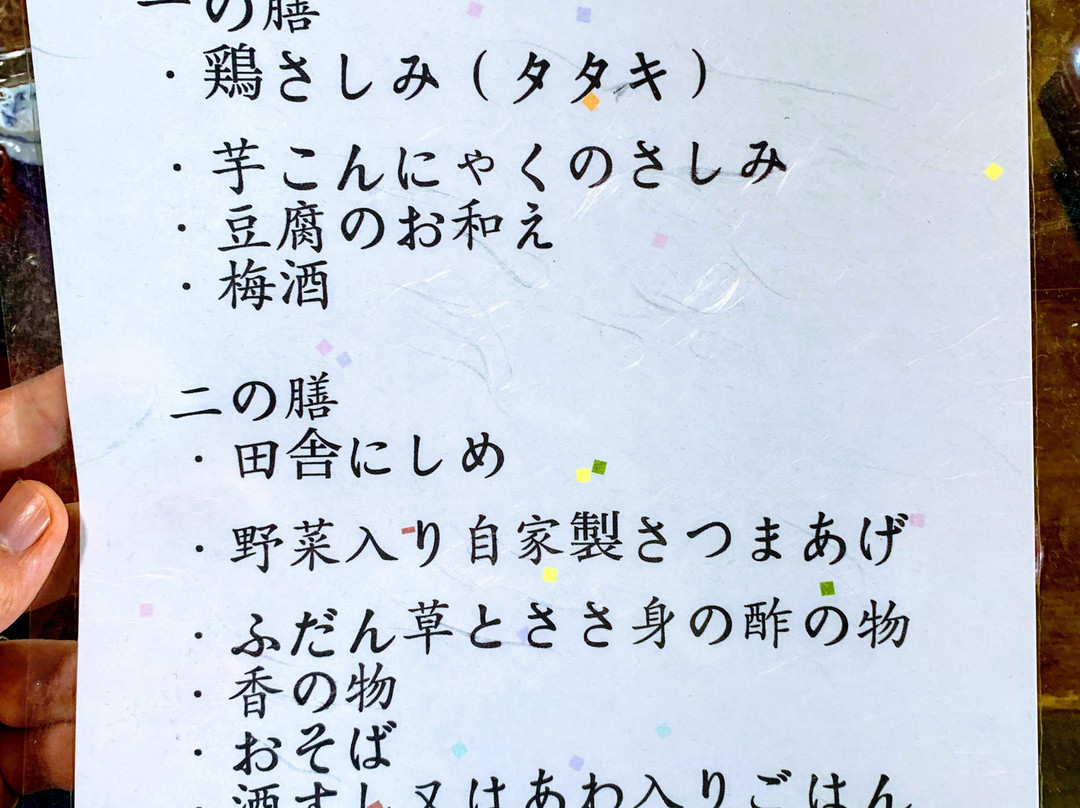 一の膳
・鶏さしみ（タタキ）
・芋こんにゃくのさしみ
・豆腐のお和え
・梅酒
二の膳
・田舎にしめ
・野菜入り自家製さつまあげ
・ふだん草とささ身の酢の物
・香の物
・おそば
・酒すし又はあわ入りごはん